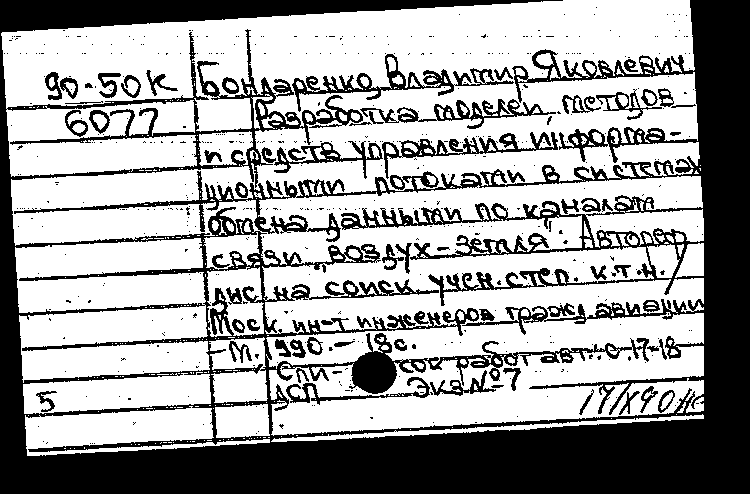 90-50К Бондаренко, Владимир Яковлевич
6077 Разработка моделей, методов
и средств управления информа-
ционными потоками в системах
обмена данными по каналам
связи „воздух-земля“: Автореф
дис. на соиск учен. степ. к.т.н. /
Моск. ин-т инженеров гражд. авиации
- М. 1990. - 18с.
Спи- сок работ авт.: с. 17-18
ДСП Экз № 7
5 17/IX90